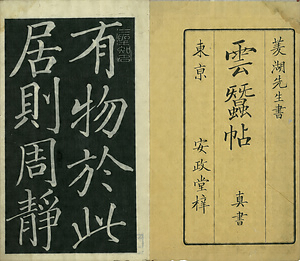 菱湖先生書
雲蠶帖
真書
東京 安政堂梓
有物於此
居則周靜